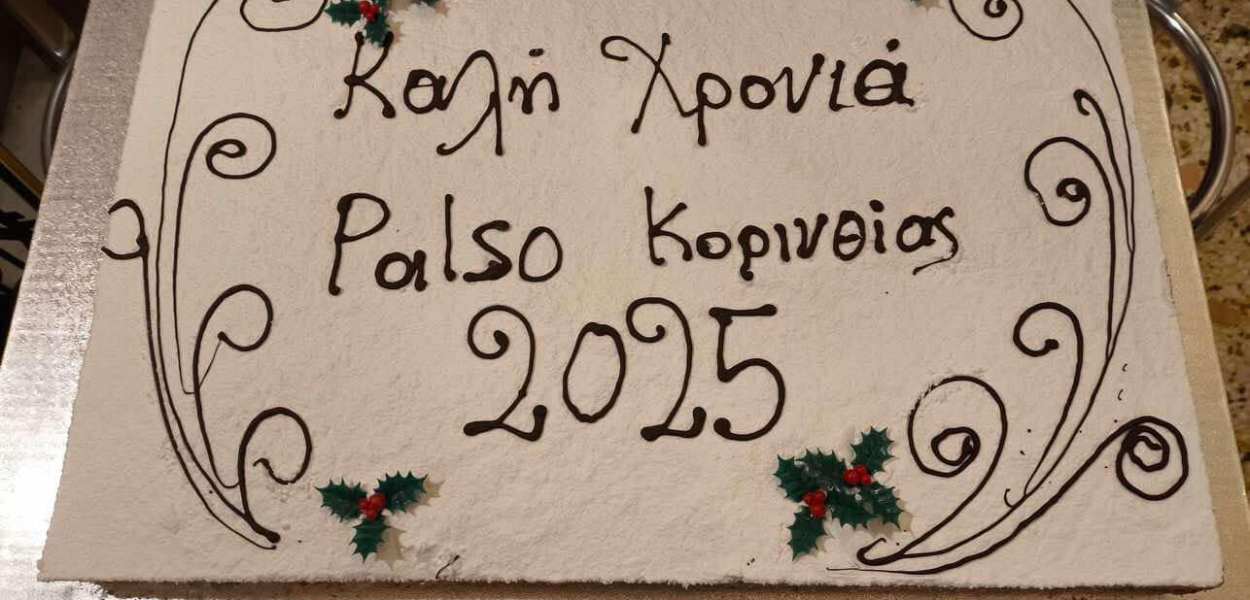 Καλή Χρονιά
Palso Κορινθίας
2025